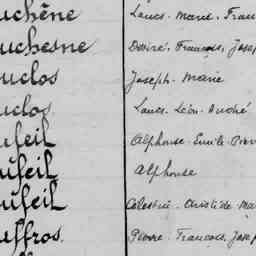 uchêne Louis. Marie. Fran
uchesne Désiré. François. Josep
uclos Joseph. Marie
uclos Louis. Léon. André
ufeil Alphonse. Emile. Pier
ufeil Alphonse
ufeil Célestin. Aristide Ma
uffros. Pierre. François. Josep